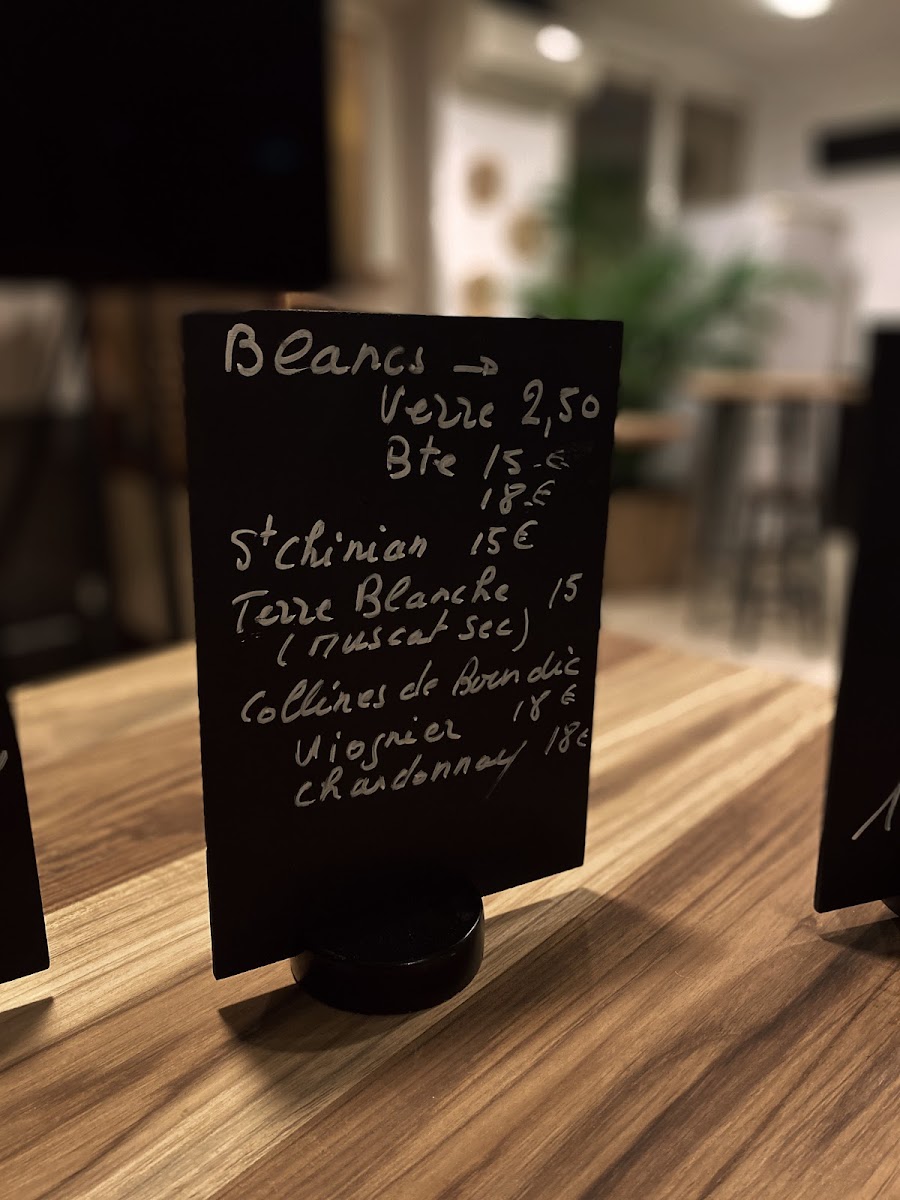 Blancs →
Verre 2,50
Bte 15.€
18.€
St Chinian 15€
Terre Blanche 15
(Muscat sec)
Collines de Bourdic
Viognier 18€
Chardonnay 18€